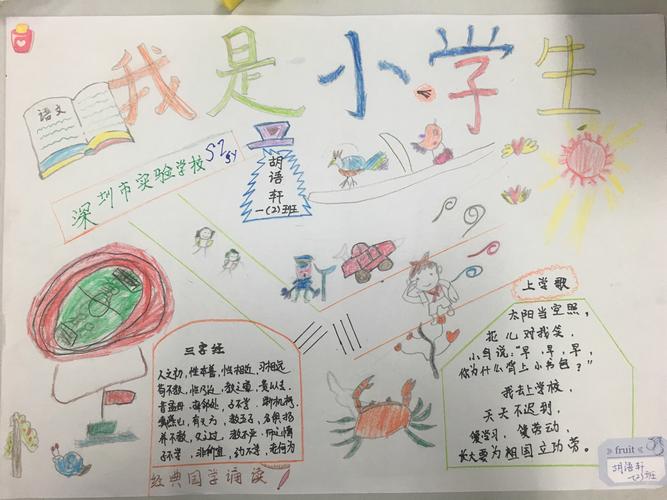 我是小学生
语文
深圳市实验学校
SZ
SY
胡
语
轩
一(2)班
上学歌
太阳当空照,
花儿对我笑,
小鸟说:"早,早,早,
你为什么背上小书包?"
我去上学校,
天天不迟到,
爱学习,爱劳动,
长大要为祖国立功劳。
三字经
人之初,性本善,性相近,习相远
苟不教,性乃迁,教之道,贵以专,
昔孟母,择邻处,子不学,断机杼,
燕山,有义方,教五子,名俱扬
养不教,父之过,教不严,师之惰
子不学,非所宜,幼不学,老何为
经典国学诵读
» fruit «
胡语轩
一(2)班